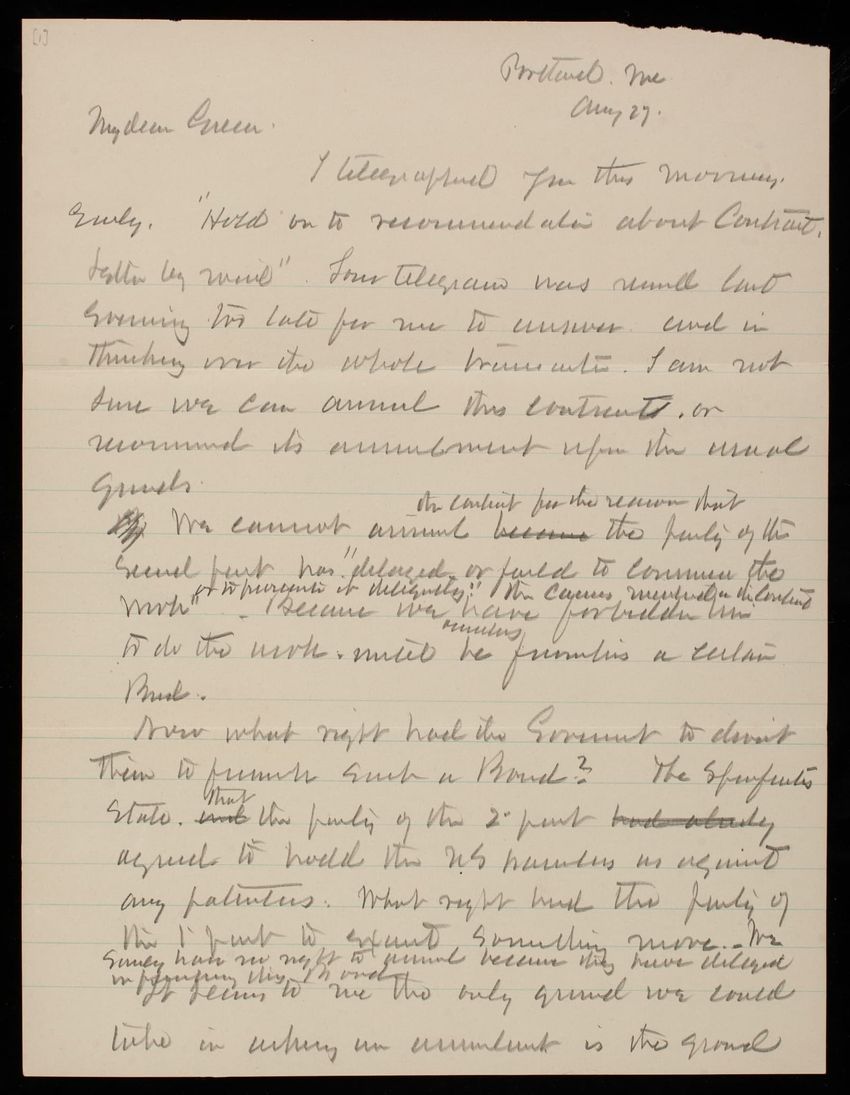 [1]
Portland. Me
Aug 27.
My dear Green.
I telegraphed you this morning.
Early. "Hold on to recommendation about Contract.
Letter by mail". Your telegram was recvd last
Evening too late for me to answer and in
thinking over the whole transaction. I am not
Sure we can annul this contract. or
recommend its annulment upon the usual
Grounds.
the contract for the reason that
We cannot annul because the party of the
Second part has "delayed or failed to commence the
or to prosecute it diligently." the causes mentioned in the Contract
Work" Because we have forbidden him
to do the work. until he furnishes a certain
Bond.
Now what right had the Government to
Them to furnish such a Bond? The Specifications
State. that the party of the 2d part had already
agreed to hold the US harmless as against
any patentees. What right had the party of
the 1st part to exact something more. - We
Surely have no right to annul because they have delayed
in furnishing this Bond
It seems to me the only ground we could
take in asking an annulment is the ground